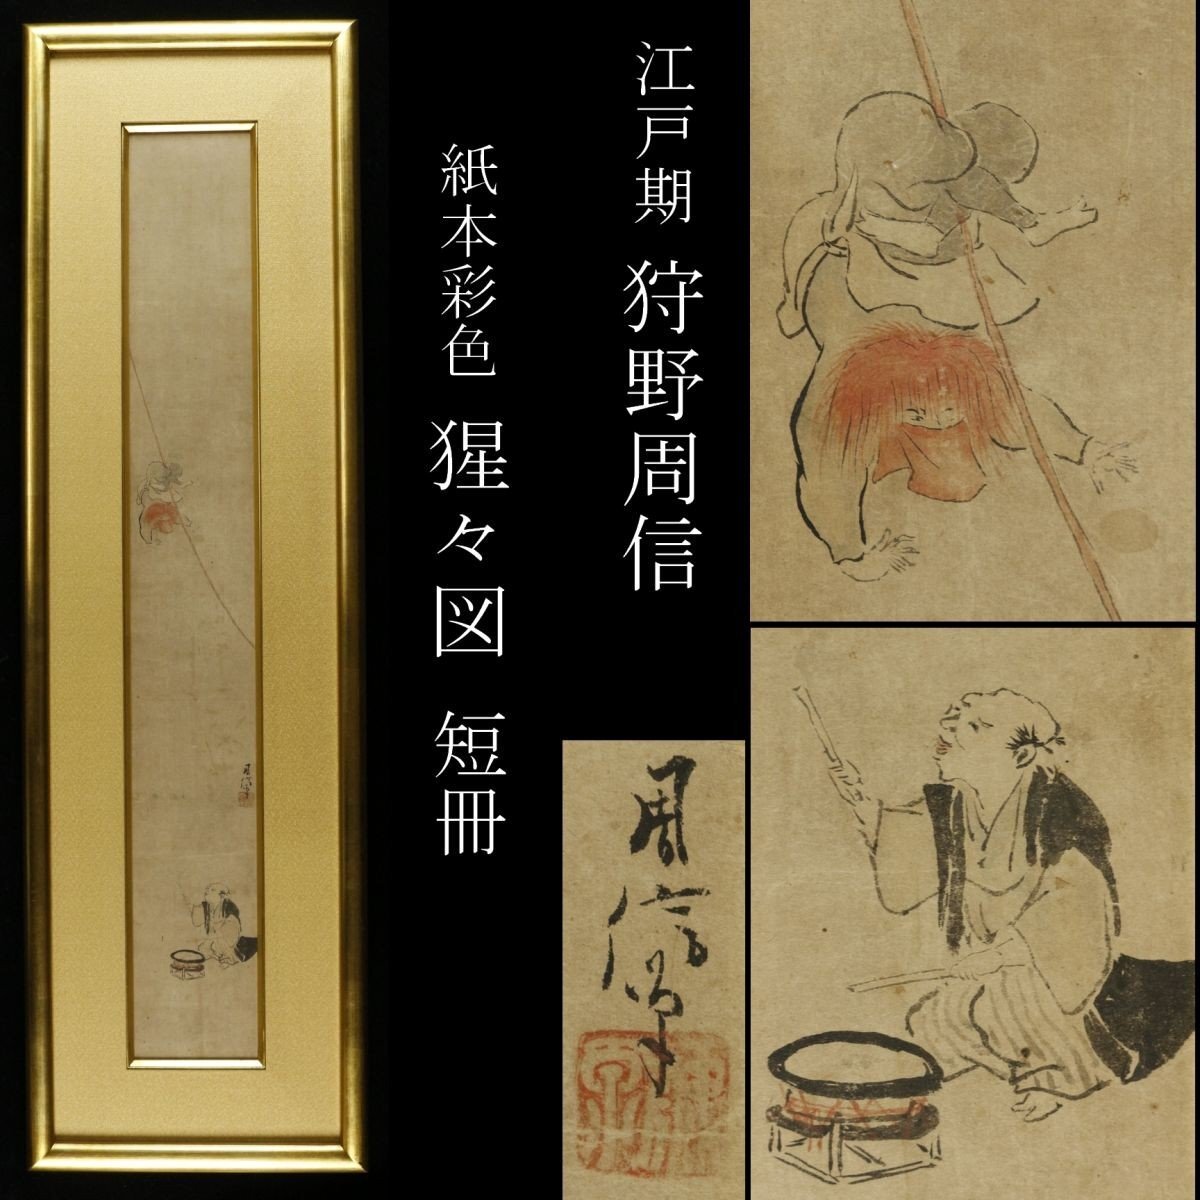 江戸期 狩野周信
紙本彩色 猩々図 短冊
周信筆